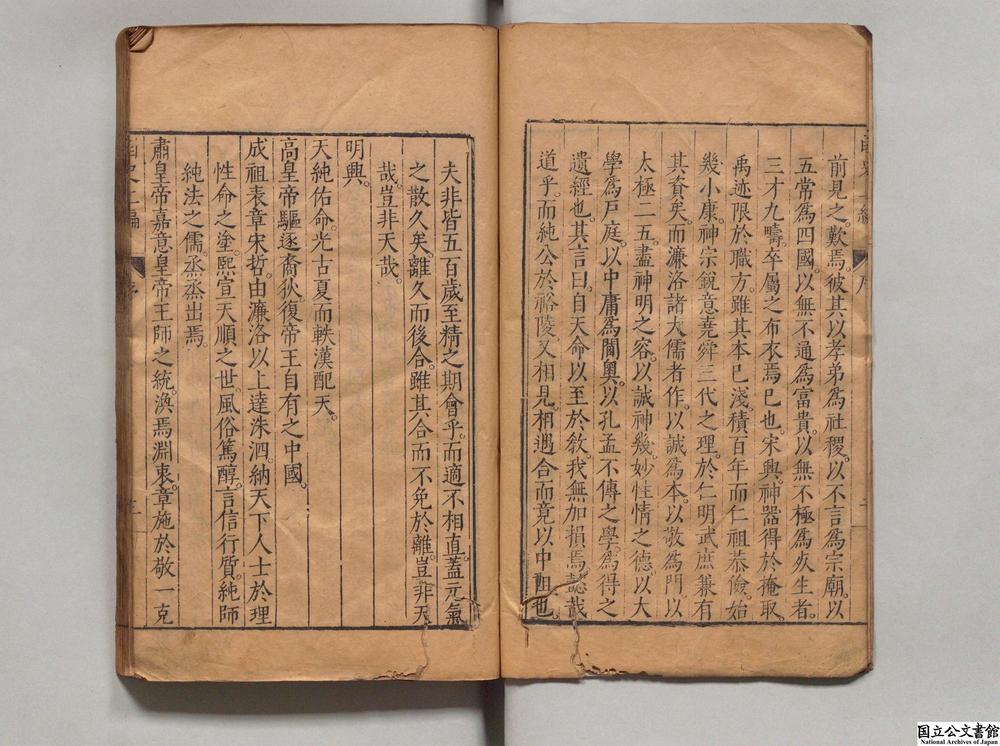 前見之歎焉。彼其以孝弟為社稷。以不言為宗廟。以
五常為四國。以無不通為富貴。以無不極為久生者。
三才九疇。卒屬之布衣焉已也。宋興。神器得於掩取。
禹迹限於職方。雖其本已淺。積百年而仁祖恭儉。始
幾小康。神宗銳意堯舜三代之理。於仁明武庶兼有
其資矣。而濂洛諸大儒者作。以誠為本。以敬為門。以
太極二五。盡神明之容。以誠神幾。妙性情之德。以大
學為戸庭。以中庸為閫奧。以孔孟不傳之學。為得之
遺經也。其言曰。自天命以至於敎。我無加損焉。認哉
道乎。而純公於裕陵又相見。相遇合而竟以中阻也。
夫非皆五百歲至精之期會乎。而適不相直。蓋元氣
之散久矣。離久而後合。雖其合而不免於離。豈非天
哉。豈非天哉。
明興。
天純佑命。光古夏而軼漢配天。
高皇帝驅逐裔狄。復帝王自有之中國。
成祖表章宋哲。由濂洛以上達洙泗。納天下人士於理
性命之塗。熙宣天順之世。風俗篤醇。言信行質。純師
純法之儒。烝烝出焉。
肅皇帝嘉意皇帝王師之統。渙焉淵衷。章施於敬一克
序
国立公文書館
National Archives of Japan